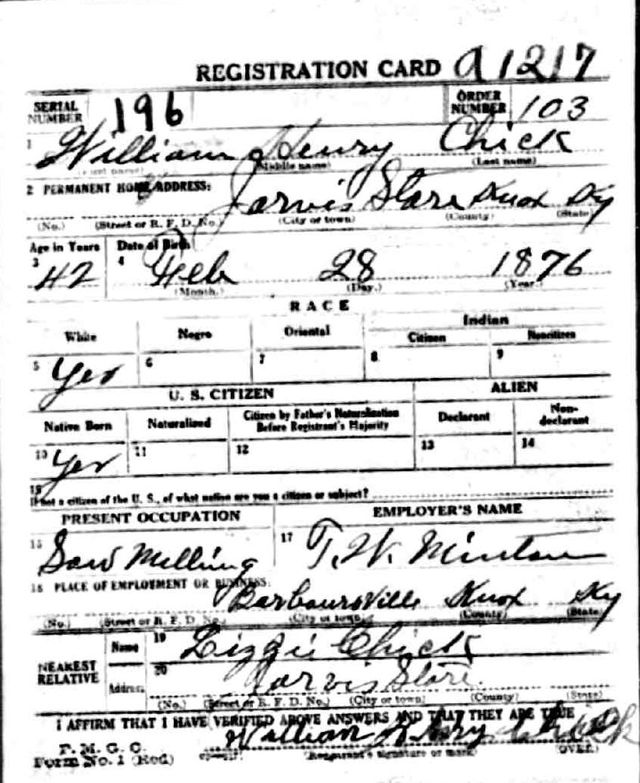 REGISTRATION CARD A1217
SERIAL NUMBER 196 ORDER NUMBER 103
1 William Henry Chick
(First name) (Middle name) (Last name)
2 PERMANENT HOME ADDRESS: Jarvis Store Knox Ky
(No.) (Street or R. F. D. No.) (City or town) (County) (State)
Age in Years Date of Birth
3 42 4 Feb 28 1876
(Month.) (Day.) (Year.)
RACE
White Negro Oriental Indian
Citizen Noncitizen
5 Yes 6 7 8 9
U. S. CITIZEN ALIEN
Native Born Naturalized Citizen by Father's Naturalization Before Registrant's Majority Declarant Non-declarant
10 Yes 11 12 13 14
15
If not a citizen of the U. S., of what nation are you a citizen or subject?
PRESENT OCCUPATION EMPLOYER'S NAME
16 Saw Milling 17 T. W. Minton
18 PLACE OF EMPLOYMENT OR BUSINESS:
Barboursville Knox Ky
(No.) (Street or R. F. D. No.) (City or town) (County) (State)
NEAREST RELATIVE Name 19 Lizzie Chick
Address 20 Jarvis Store
(No.) (Street or R. F. D. No.) (City or town) (County) (State)
I AFFIRM THAT I HAVE VERIFIED ABOVE ANSWERS AND THAT THEY ARE TRUE
P. M. G. O.
Form No. 1 (Red) William Henry Chick
(Registrant's signature or mark) (OVER)